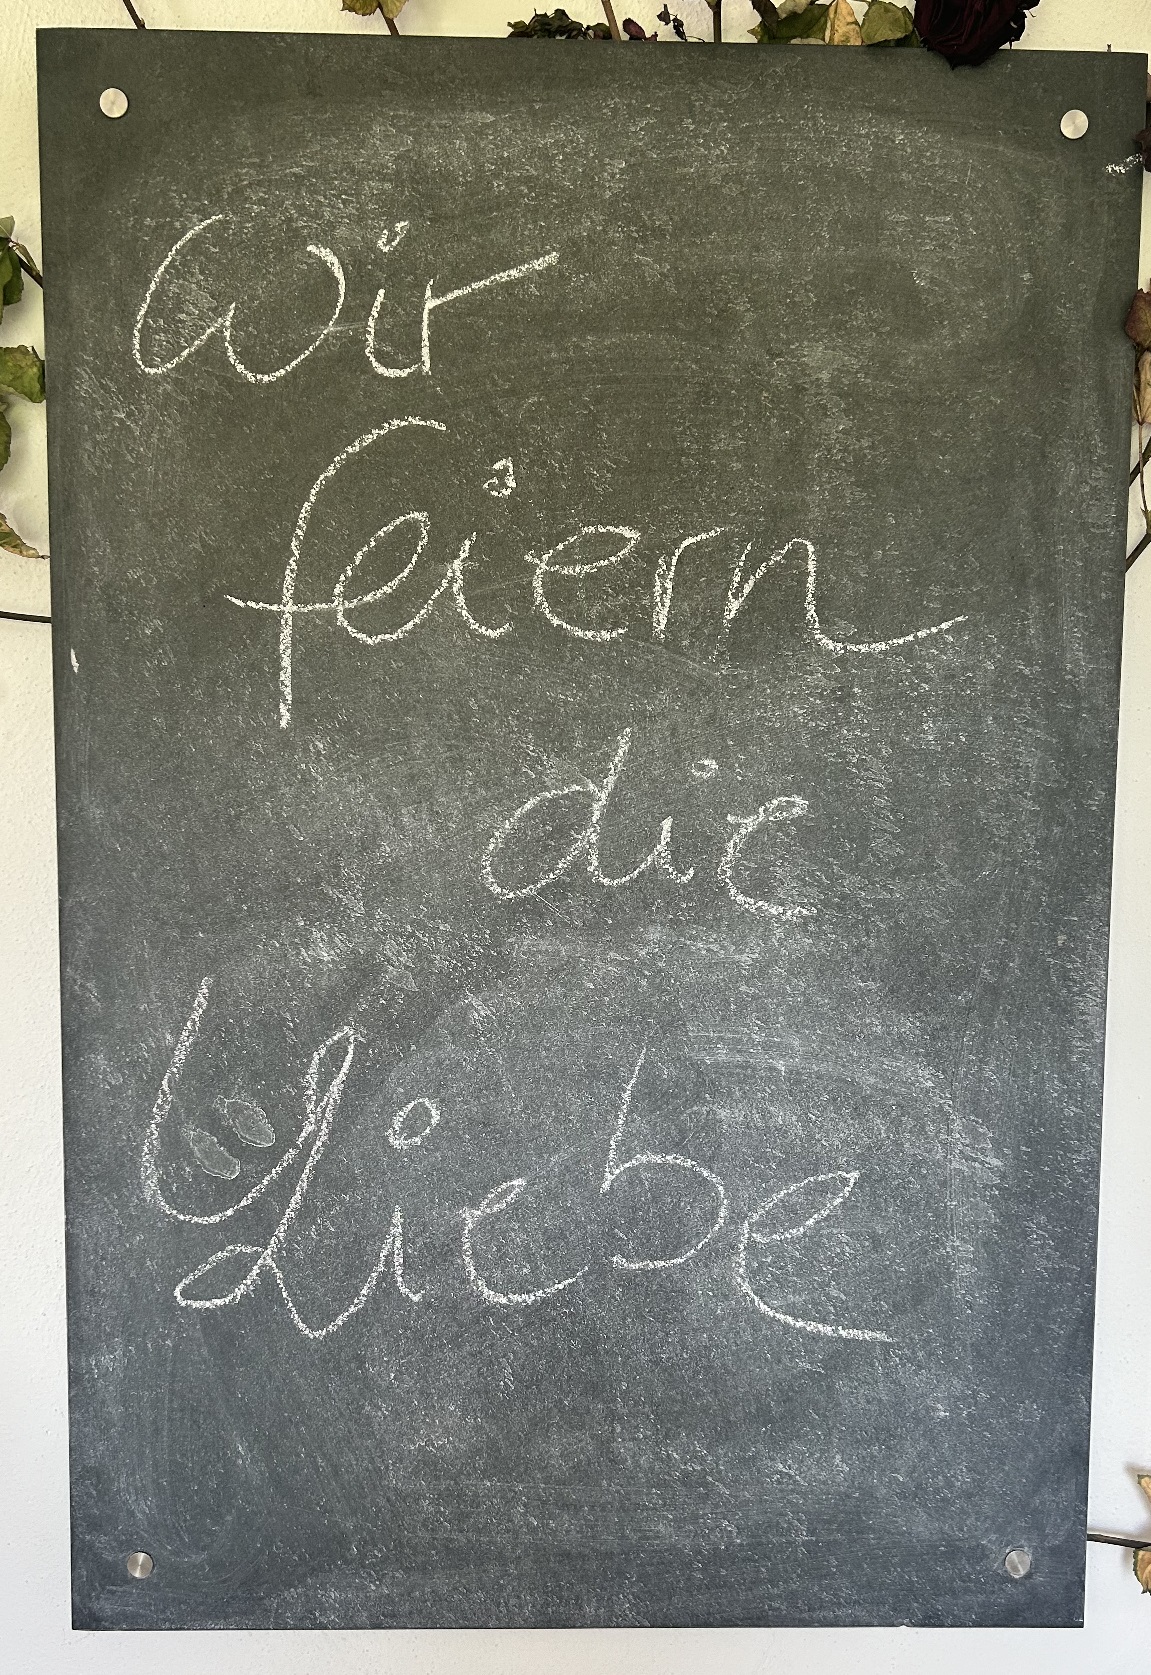 Wir
feiern
die
Liebe